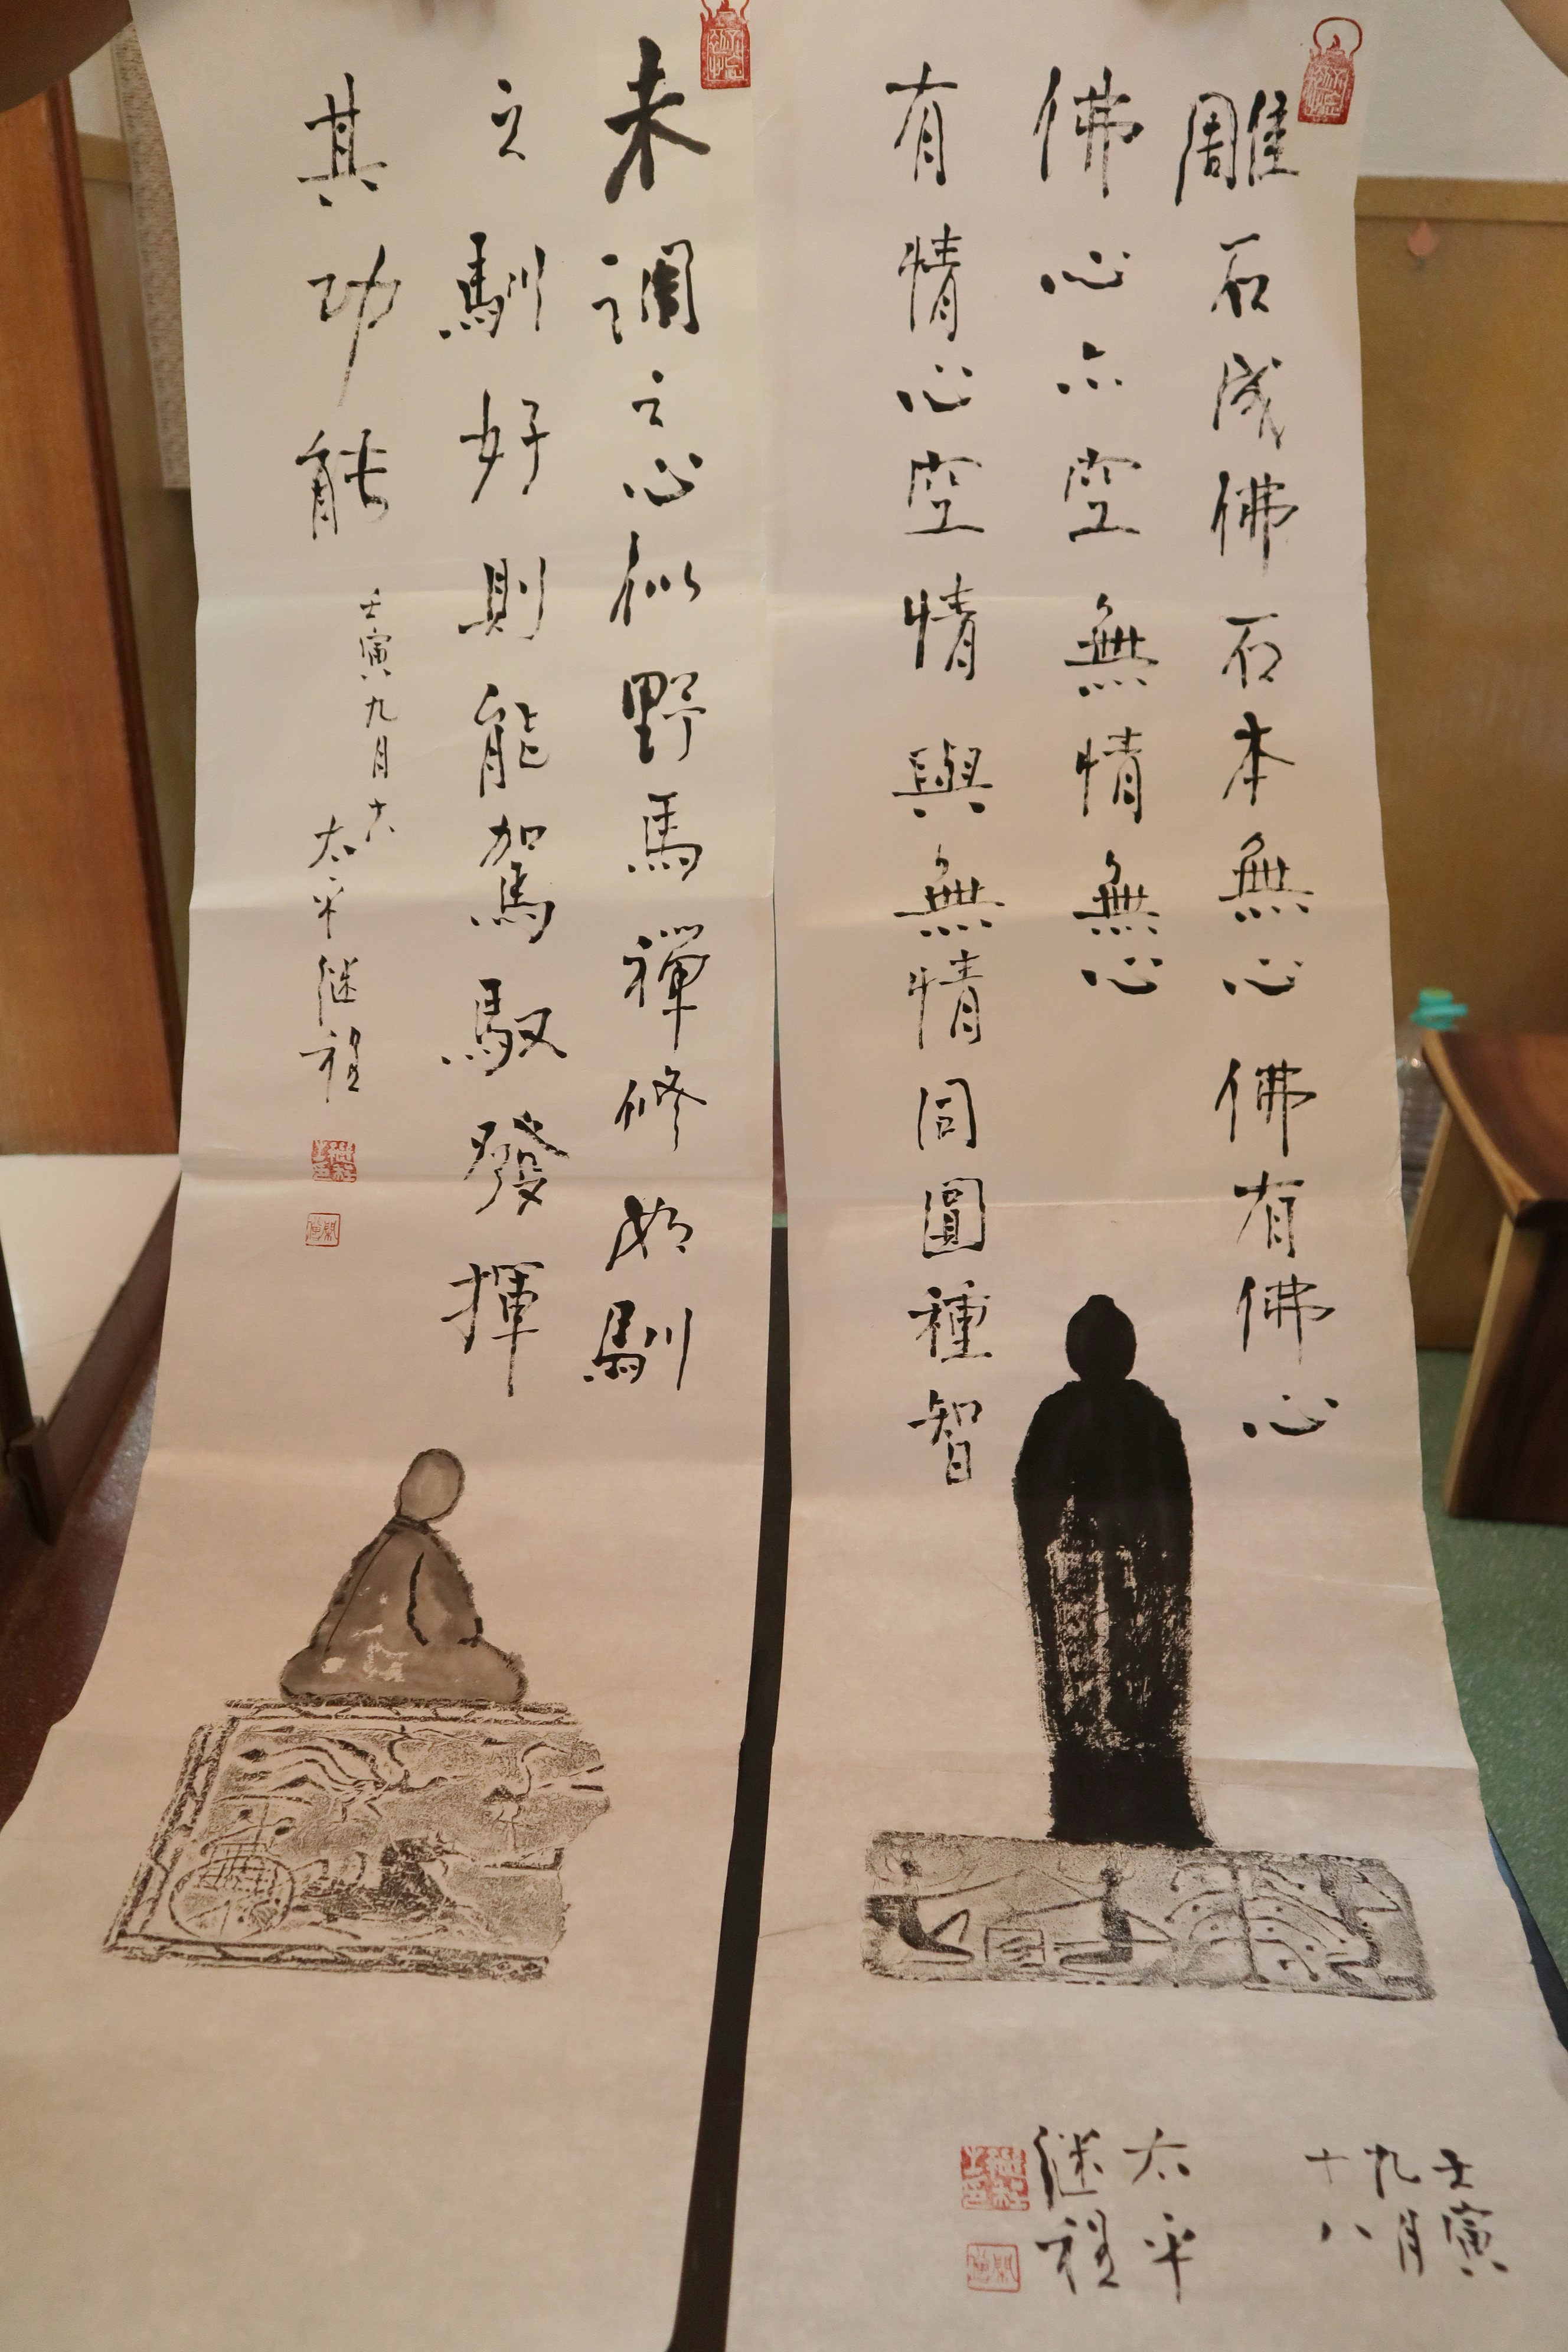 雕石成佛石本無心佛有佛心
佛心亦空無情無心
有情心空情與無情同圓種智
壬寅
九月
十八
太平
继程
未調之心似野馬禪修如馴
之馴好則能駕馭發揮
其功能
壬寅九月十六
太平继程